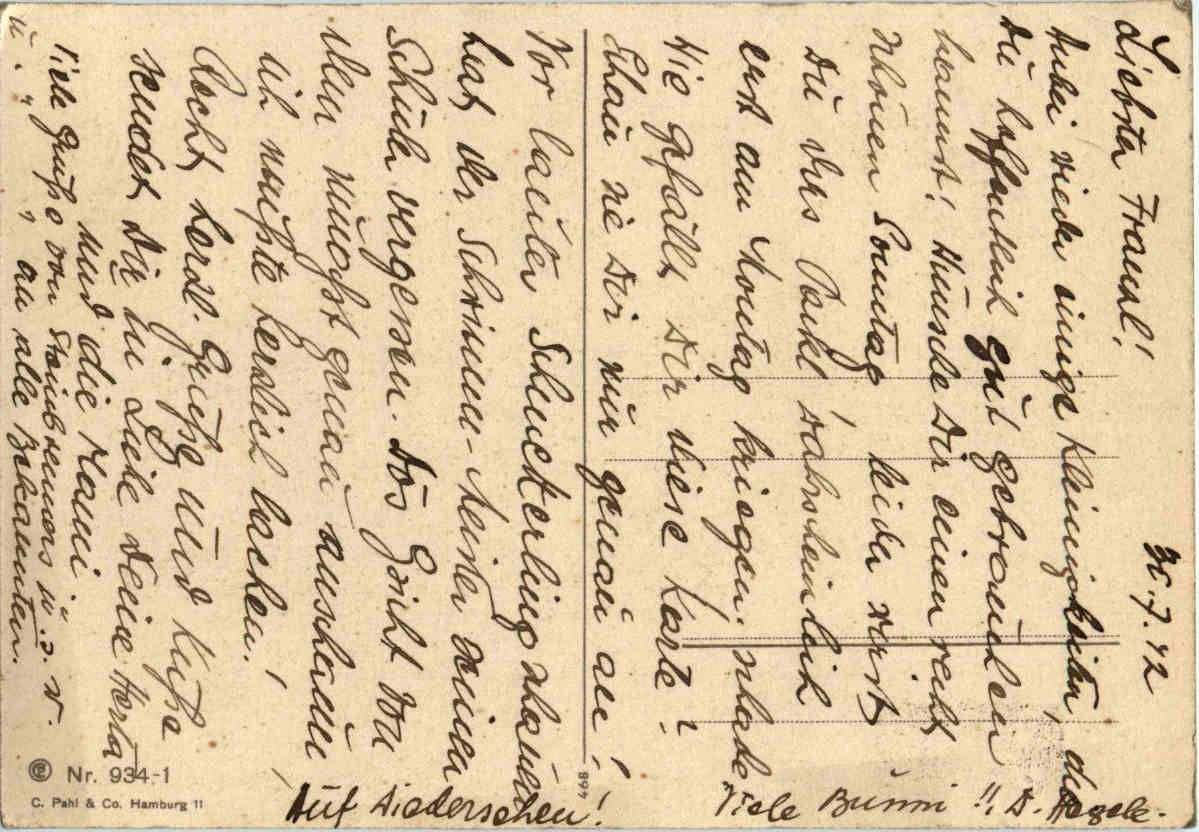 Liebste Franzl!
30.7.42
Anbei wieder einige Kleinigkeiten, die
Du hoffentlich gut gebrauchen
kannst! Wünsche Dir einen recht
schönen Sonntag, leider wirst
Du das Packl wahrscheinlich
erst am Montag kriegen. schade
Wie gefällt Dir diese Karte?
Schau sie Dir nur genau an!
Vor lauter Schmetterling schauen
hat der Schwimm-Meister seinen
Schüler vergessen. Das Gsicht von
dem mußt genau anschauen
ich mußte herzlich lachen!
Recht herzl. Grüße und Küße
sendet Dir in Liebe Deine Herta
und die Mami
Viele Grüße von u. s. w.
u. " " an alle Bekannten.
Auf Wiedersehen!
Viele Bussi!!
Nr. 934-1
C. Pahl & Co. Hamburg 11